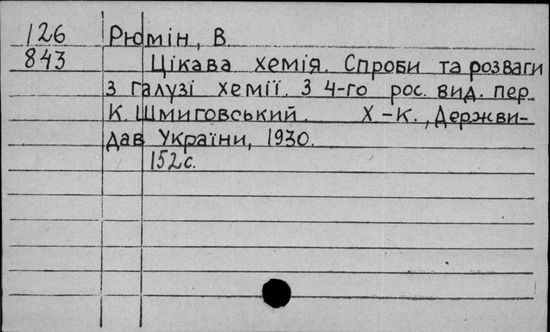 126 Рюмін, В.
843 Цікава хемія. Спроби та розваги
з галузі хемії. З 4-го рос. вид. пер.
К. Шмиговський. Х.-К., Держви-
дав України, 1930.
152с.